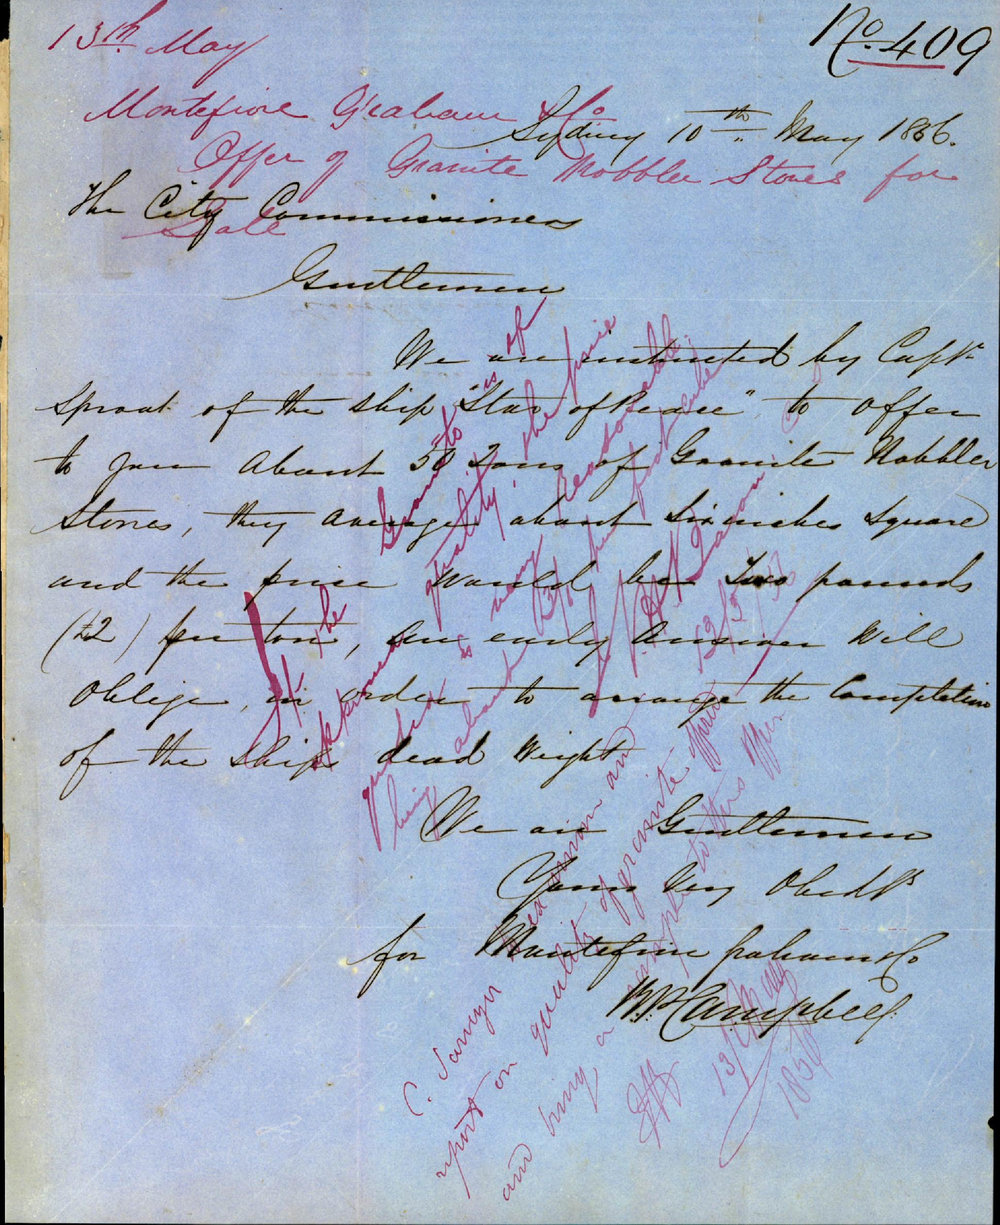 No. 409
13th May
Montefiore Graham & Co
Offer of Granite Nobbler Stones for
Sale
Sydney 10th May 1856.
The City Commissioners
Gentlemen
We are instructed by Captn
Sproat of the ship "Star of Peace" to offer
to you about 50 Tons of Granite Nobbler
Stones, they average about Six inches Square
and the price would be Two pounds
(£2) per ton, an early answer will
Oblige, in order to arrange the Completion
of the Ships dead Weight
We are Gentlemen
Yours Very Obedts
for Montefiore Graham & Co
Campbell
The
specimen Granite is of
quality, the price
is very reasonable
being about
13/5/56
C. Surveyor examine and
report on quality of granite offered
and bring a sample to this office
13/May
1856